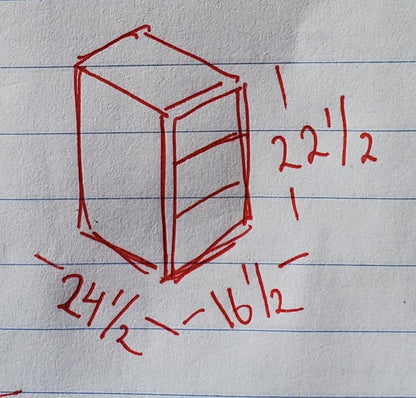 22 1/2
24 1/2
16 1/2